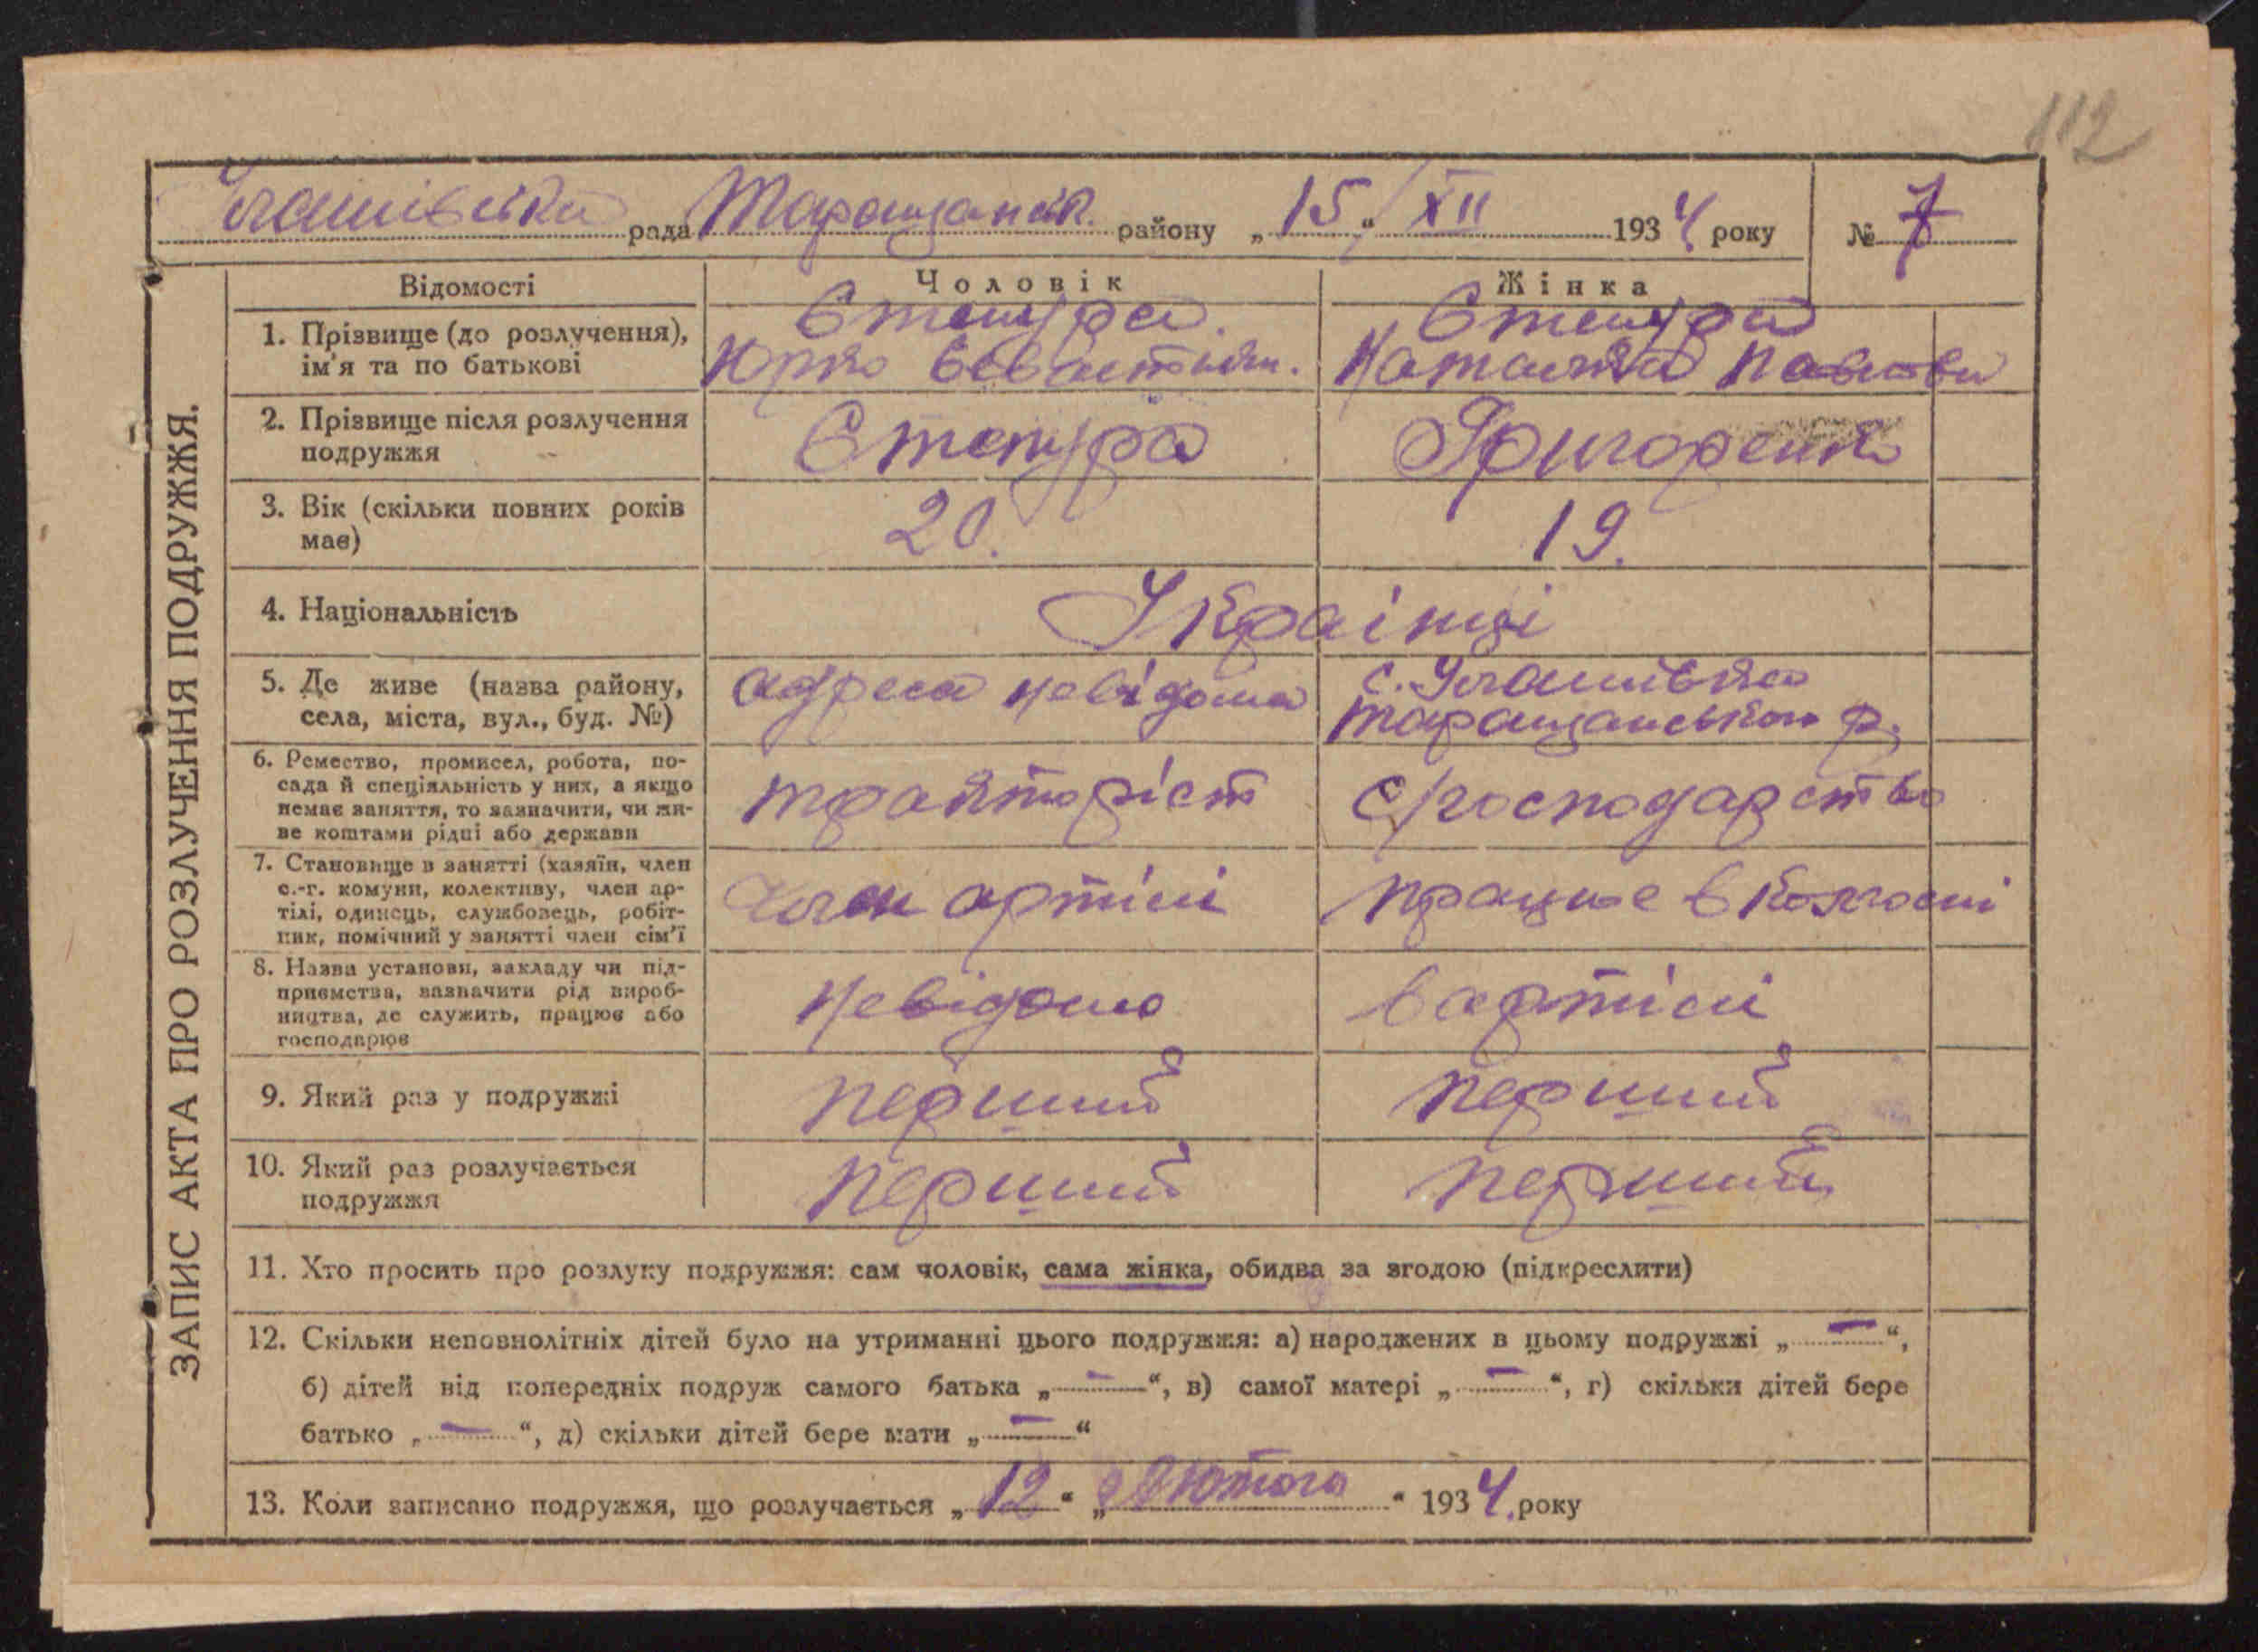 112
Улашівська рада Таращанськ. району „15“ XII 1934 року № 7
ЗАПИС АКТА ПРО РОЗЛУЧЕННЯ ПОДРУЖЖЯ.
Відомості Чоловік Жінка
1. Прізвище (до розлучення), ім'я та по батькові
Юрко Севастіян.
Наталка Павлова
2. Прізвище після розлучення подружжя
Григоренко
3. Вік (скільки повних років має) 20. 19.
4. Національність Українці
5. Де живе (назва району, села, міста, вул., буд. №)
адреса невідома
с. Улашівка
Таращанського р.
6. Ремество, промисел, робота, по-
сада й спеціяльність у них, а якщо
немає заняття, то зазначити, чи жи-
ве коштами рідні або держави
тракторіст с/господарство
7. Становище в занятті (хазяїн, член
с.-г. комуни, колективу, член ар-
тілі, одинець, службовець, робіт-
ник, помічний у занятті член сім'ї
Член артілі працює в колгоспі
8. Назва установи, закладу чи під-
приємства, зазначити рід вироб-
ництва, де служить, працює або
господарює
невідомо в артілі
9. Який раз у подружжі перший перший
10. Який раз розлучається
подружжя
перший перший
11. Хто просить про розлуку подружжя: сам чоловік, сама жінка, обидва за згодою (підкреслити)
12. Скільки неповнолітніх дітей було на утриманні цього подружжя: а) народжених в цьому подружжі „—“,
б) дітей від попередніх подруж самого батька „—“, в) самої матері „—“, г) скільки дітей бере
батько „—“, д) скільки дітей бере мати „—“
13. Коли записано подружжя, що розлучається „12“ „Лютого“ 1934 року